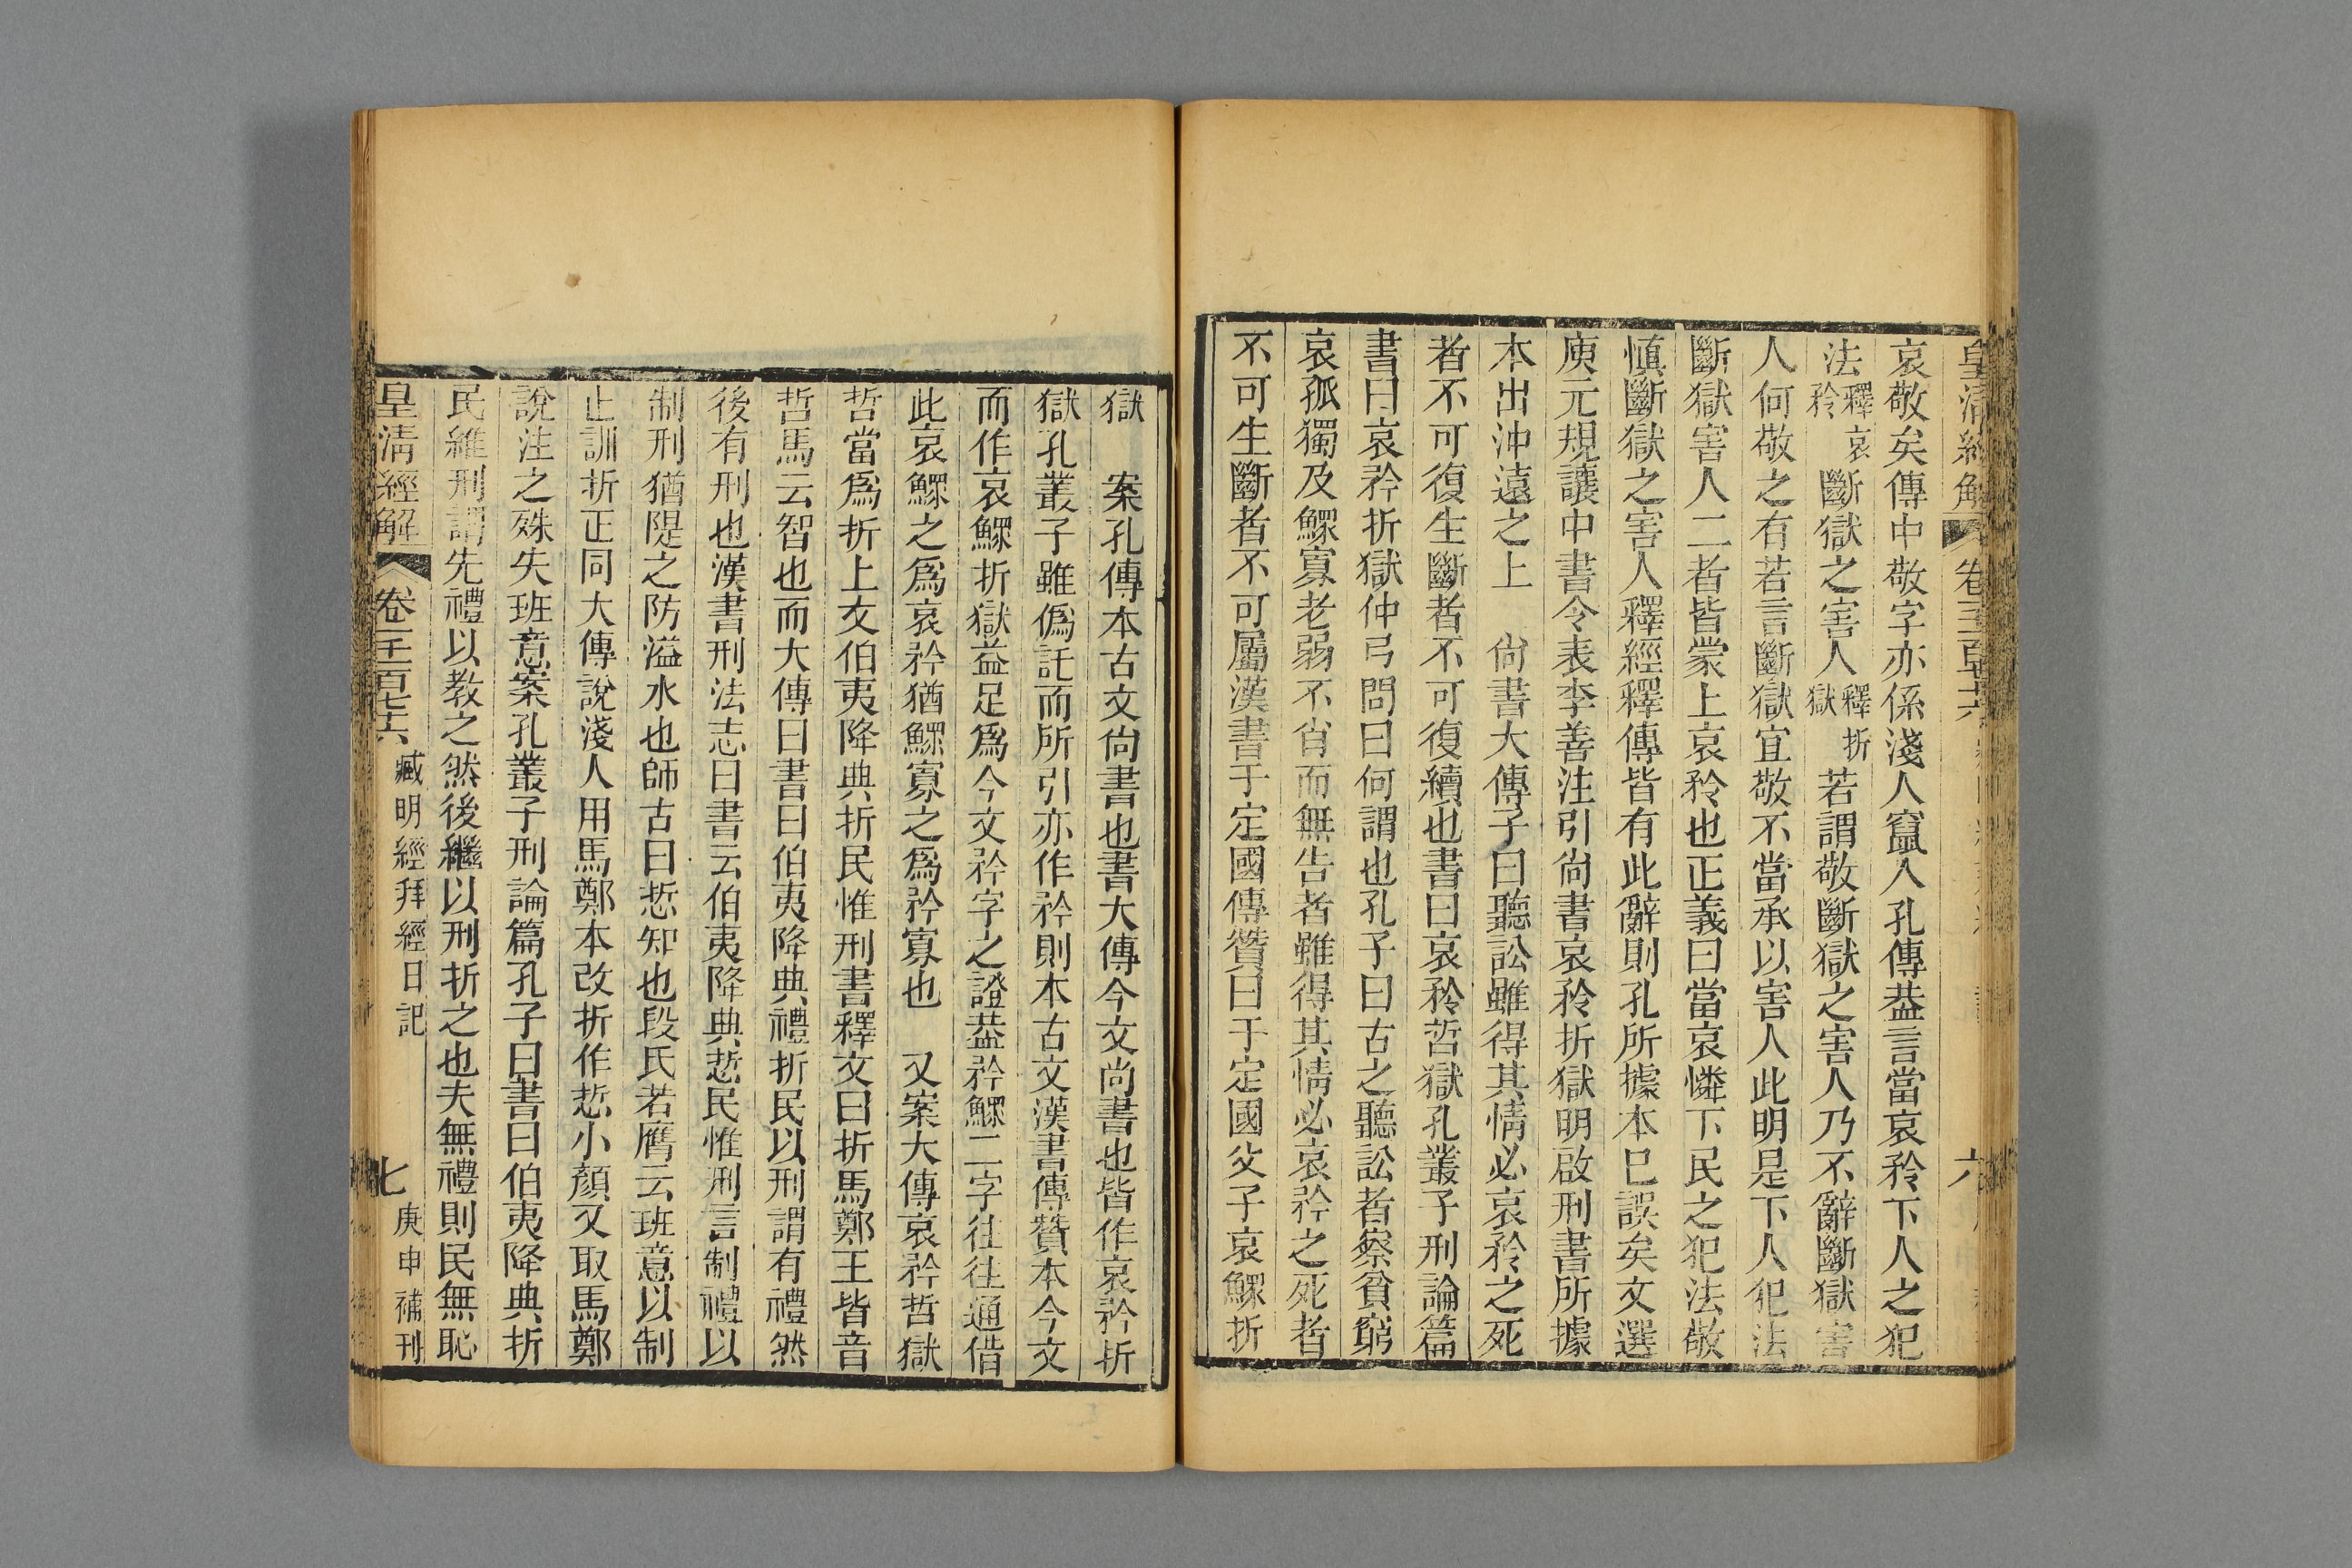 皇清經解 卷
六
哀敬矣傳中敬字亦係淺人竄入孔傳葢言當哀矜下人之犯
法釋哀矜斷獄之害人釋折獄若謂敬斷獄之害人乃不辭斷獄害
人何敬之有若言斷獄宜敬不當承以害人此明是下人犯法
斷獄害人二者皆蒙上哀矜也正義曰當哀憐下民之犯法敬
慎斷獄之害人釋經釋傳皆有此辭則孔所據本已誤矣文選
庾元規讓中書令表李善注引尚書哀矜折獄明啟刑書所據
本出沖遠之上　尚書大傳子曰聽訟雖得其情必哀矜之死
者不可復生斷者不可復續也書曰哀矜哲獄孔叢子刑論篇
書曰哀矜折獄仲弓問曰何謂也孔子曰古之聽訟者察貧窮
哀孤獨及鰥寡老弱不肖而無告者雖得其情必哀矜之死者
不可生斷者不可屬漢書于定國傳贊曰于定國父子哀鰥折
獄　案孔傳本古文尚書也書大傳今文尚書也皆作哀矜折
獄孔叢子雖僞託而所引亦作矜則本古文漢書傳贊本今文
而作哀鰥折獄益足爲今文矜字之證葢矜鰥二字往往通借
此哀鰥之爲哀矜猶鰥寡之爲矜寡也　又案大傳哀矜哲獄
哲當爲折上文伯夷降典折民惟刑書釋文曰折馬鄭王皆音
哲馬云智也而大傳曰書曰伯夷降典禮折民以刑謂有禮然
後有刑也漢書刑法志曰書云伯夷降典悊民惟刑言制禮以
制刑猶隄之防溢水也師古曰悊知也段氏若膺云班意以制
止訓折正同大傳說淺人用馬鄭本改折作悊小顏又取馬鄭
說注之殊失班意案孔叢子刑論篇孔子曰書曰伯夷降典折
民維刑謂先禮以教之然後繼以刑折之也夫無禮則民無恥
皇清經解 卷一千一百七十六 臧明經拜經日記 七 庚申補刊